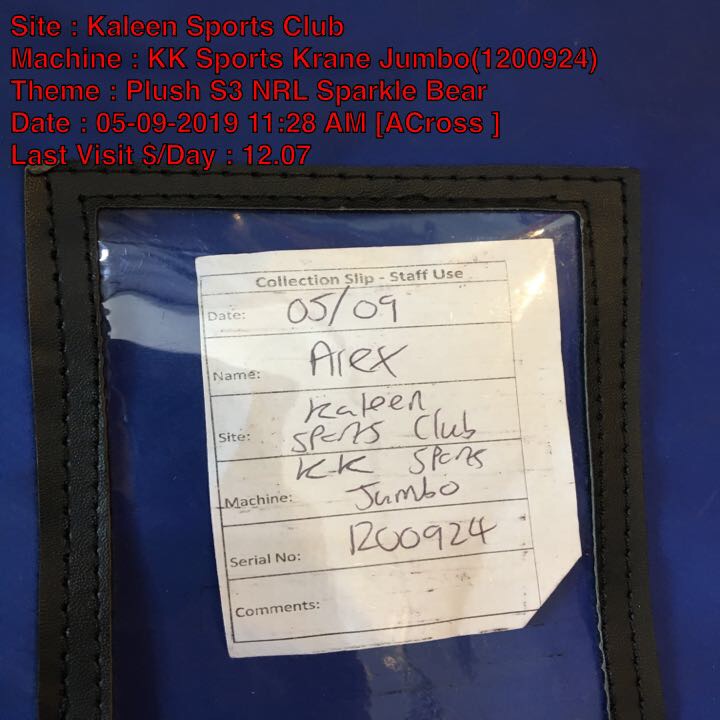 Site : Kaleen Sports Club
Machine : KK Sports Krane Jumbo(1200924)
Theme : Plush S3 NRL Sparkle Bear
Date : 05-09-2019 11:28 AM [ACross ]
Last Visit $/Day : 12.07
Collection Slip - Staff Use
Date: 05/09
Name: Alex
Site: Kaleen
Sports Club
KK Sports
Machine: Jumbo
Serial No: 1200924
Comments: